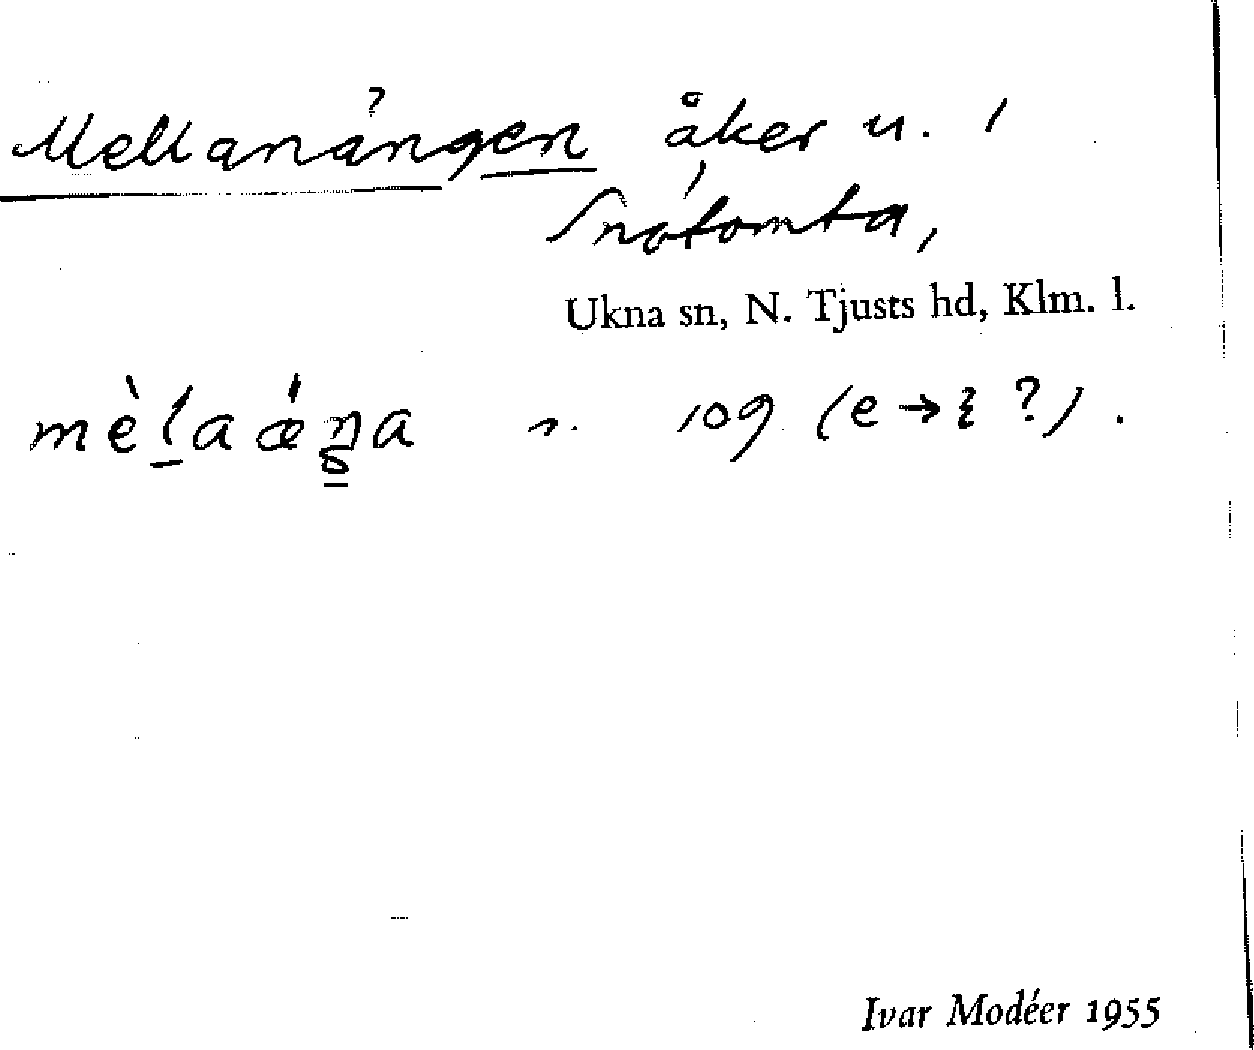 Mellanängen åker u. 1
Snötomta,
Ukna sn, N. Tjusts hd, Klm. l.
109 (e → ?).
Ivar Modéer 1955